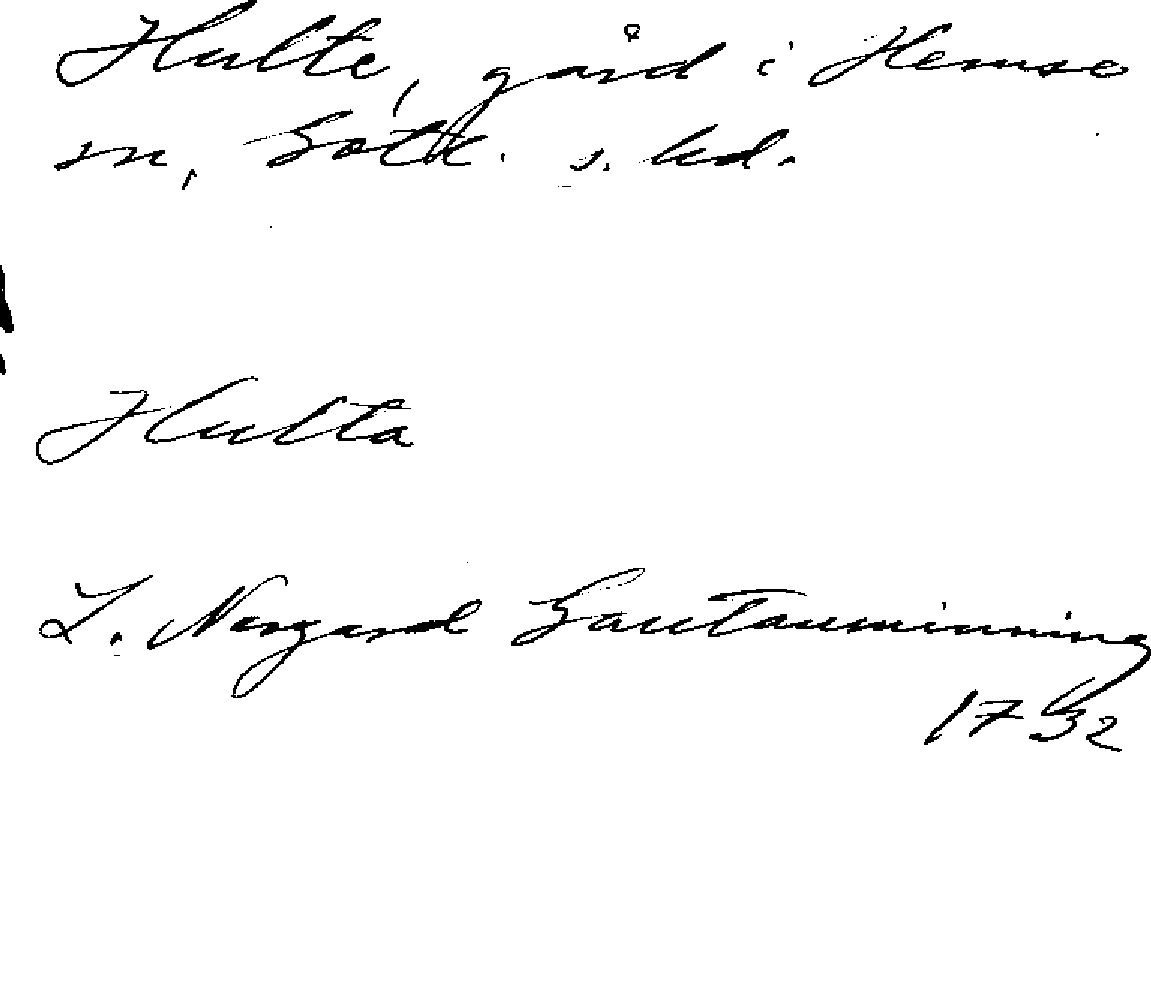 Hulte, gård i Hemse
sn, Gotl. s. hd.
Hulta
L. Norgard Gautauminning
1732